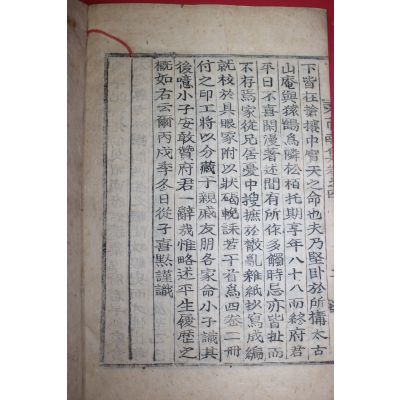 下皆枉薈攘中實天之命也夫乃堅卧於所構太古
山庵與猿鶴爲隣松栢托期享年八十八而終府君
平日不喜閑漫著述間有所作多觸時忌亦皆扯而
不存焉家從兄居憂中搜摭於散亂雜紙抄寫成編
就校於具眼家附以狀碣輓誄若干首爲四卷二冊
付之印工將以分藏于親戚友朋各家命小子識其
後噫小子安敢贊府君一辭哉惟略述平生履歷之
槪如右云爾丙戌季冬日從子喜默謹識